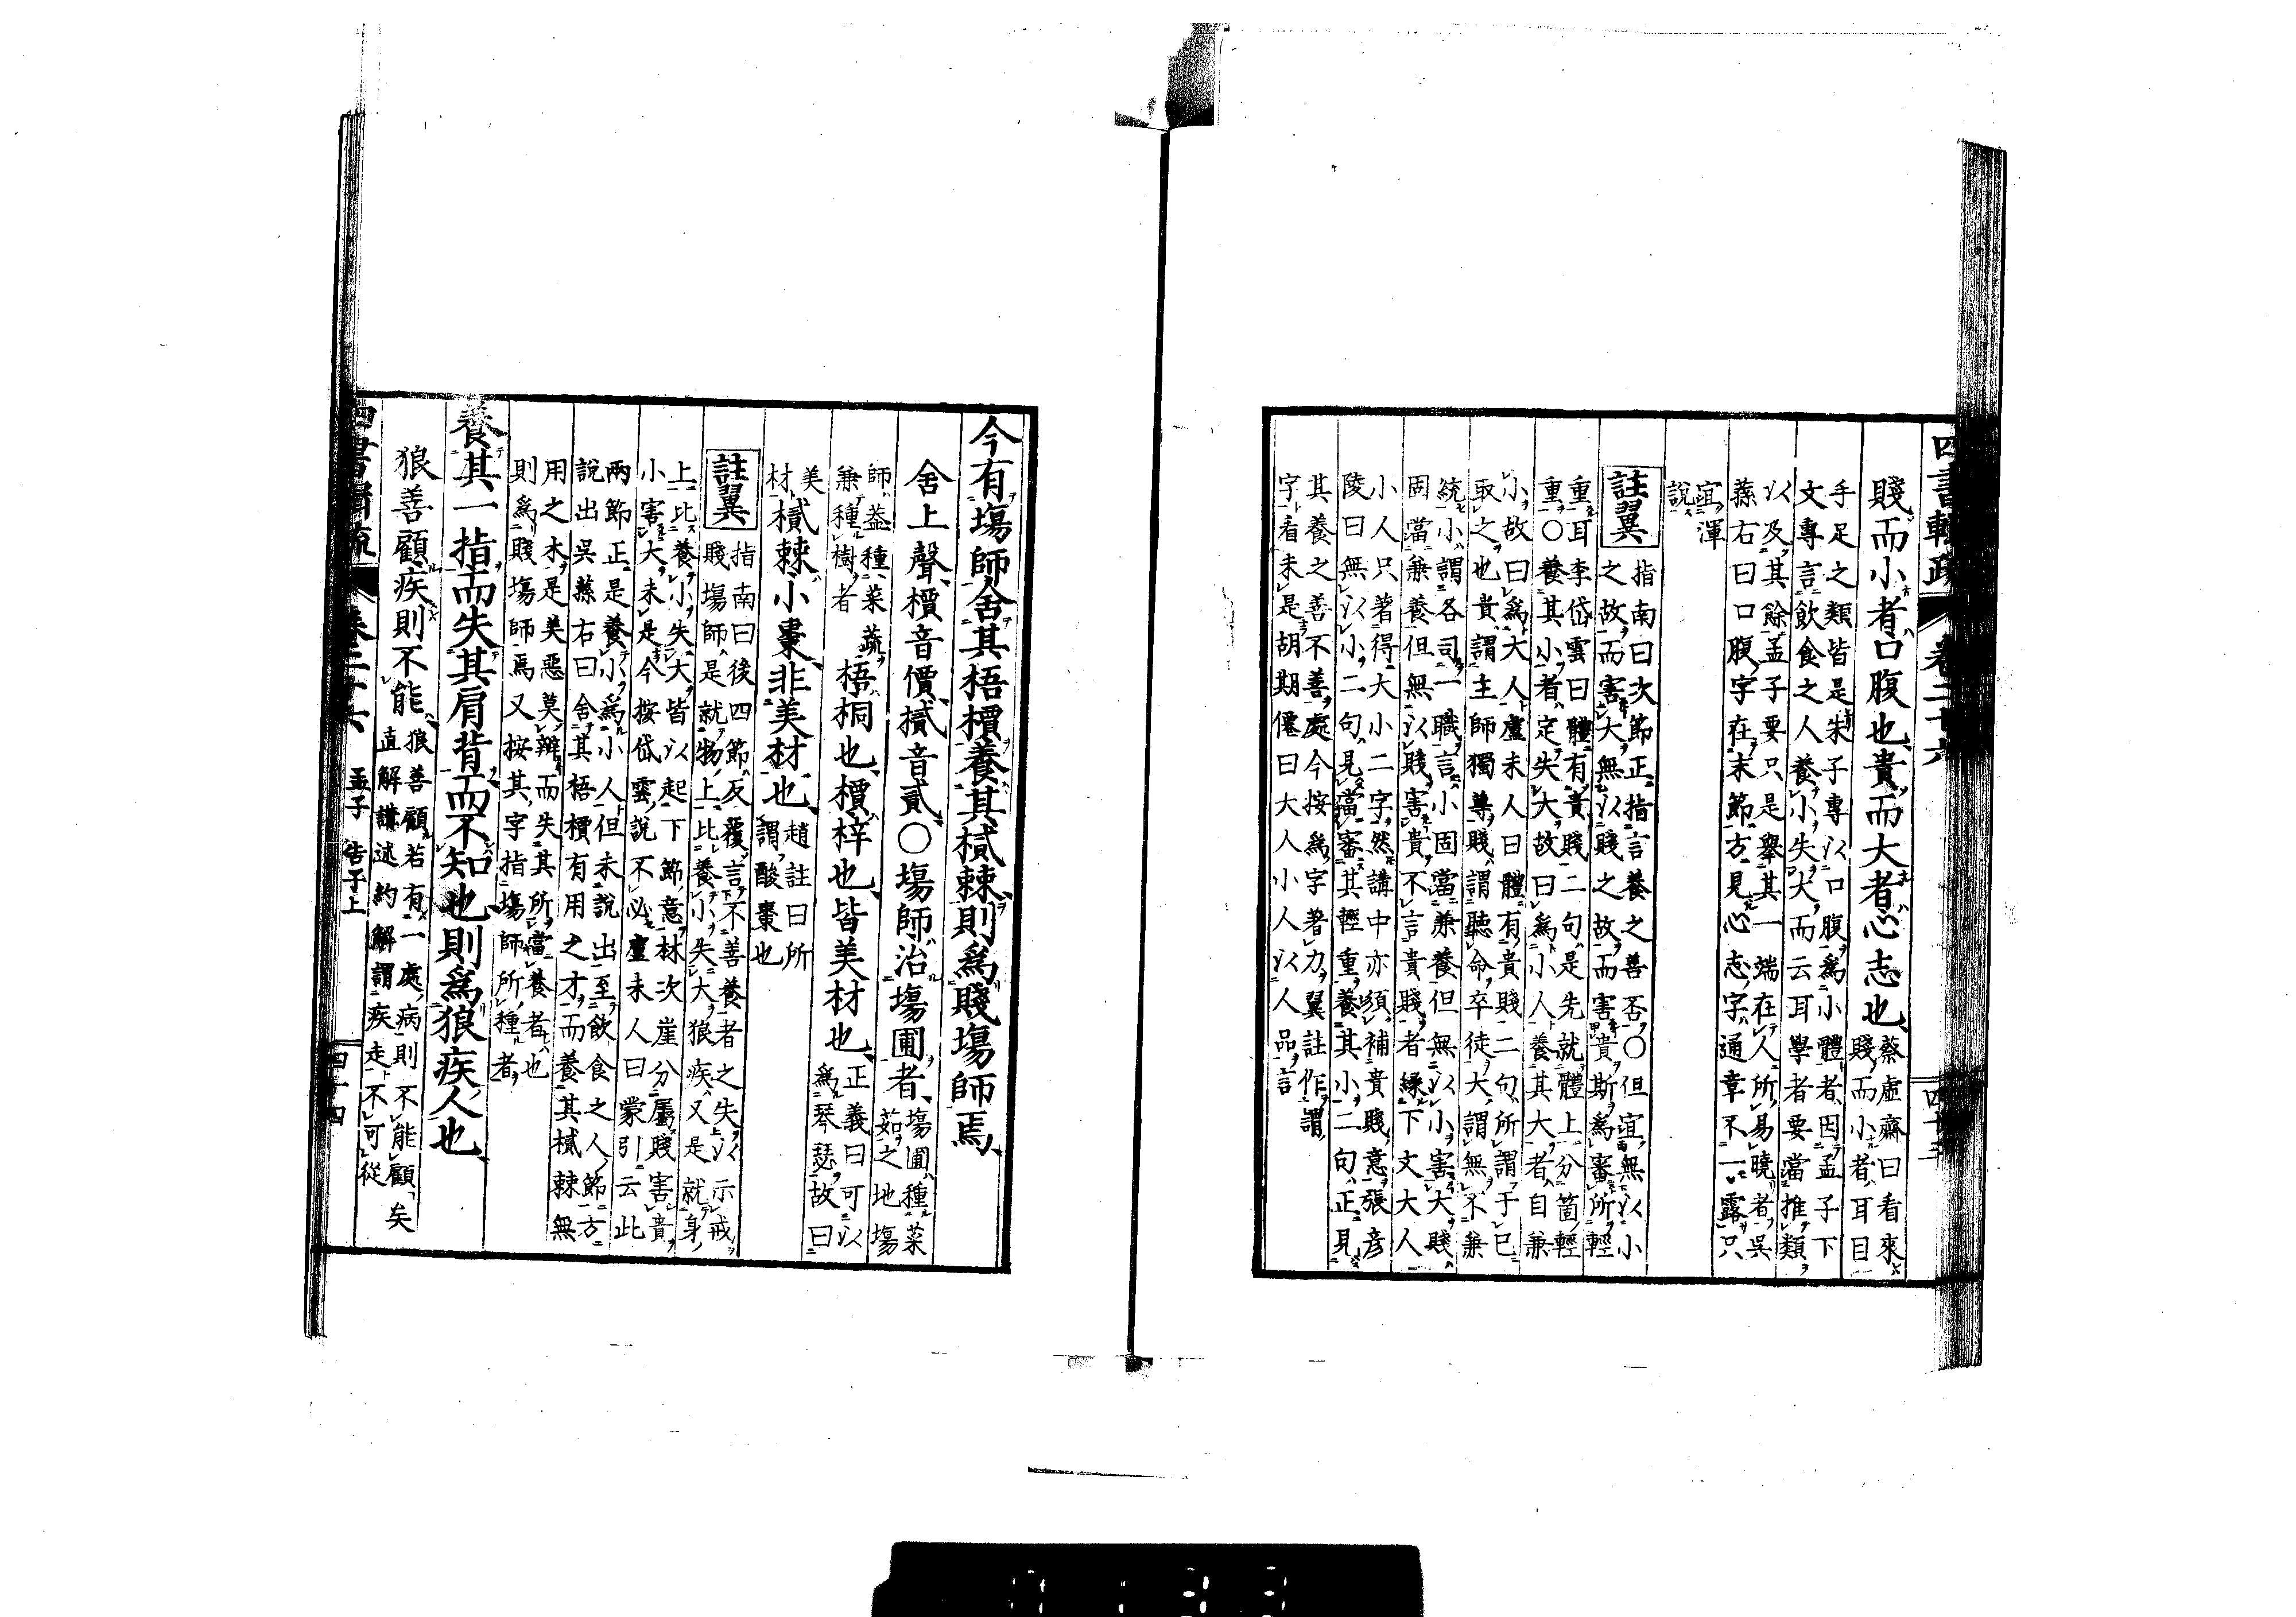 四書輯疏 卷二十六 四十三
賤而小者口腹也貴而大者心志也 蔡虛齋曰看來
賤而小者耳目
手足之類皆是朱子專以口腹爲小體者因孟子下
文專言飲食之人養小失大而云耳學者要當推類
以及其餘孟子要只是舉其一端在人所易曉者吳
蓀右曰口腹字在末節方見心志字通章不一露只
宜渾
說
註翼 指南曰次節正指言養之善否○但宜無以小
之故而害大無以賤之故而害貴斯爲審所輕
重耳李岱雲曰體有貴賤二句是先就體上分箇輕
重○養其小者定失大故曰爲小人養其大者自兼
小故曰爲大人盧未人曰體有貴賤二句所謂于已
取之也貴謂主師獨尊賤謂聽命卒徒大謂無不兼
統小謂各司一職言小固當兼養但無以小害大賤
固當兼養但無以賤害貴不言貴賤者緣下文大人
小人只著得大小二字然講中亦須補貴賤意張彥
陵曰無以小二句見當審其輕重養其小二句正見
其養之善不善處今按爲字著力翼註作謂
字看未是胡期僊曰大人小人以人品言
今有場師舍其梧檟養其樲棘則爲賤場師焉
舍上聲檟音價樲音貳○場師治場圃者 場圃種菜
茹之地場
師益種菜蔬
兼種樹者 梧桐也檟梓也皆美材也 正義曰可以
爲琴瑟故曰
美
材 樲棘小棗非美材也 趙註曰所
謂酸棗也
註翼 指南曰後四節反覆言不善養者之失以示戒
賤場師是就物上比養小失大狼疾又是就身
上比養小失大皆以起下節意林次崖分屬賤害貴
小害大未是今按岱雲說不必盧未人曰蒙引云此
兩節正是養小爲小人但未說出至飲食之人節方
說出吳蓀右曰舍其梧檟有用之才而養其樲棘無
用之木是美惡莫辨而失其所當養者也
則爲賤場師焉又按其字指場師所種者
養其一指而失其肩背而不知也則爲狼疾人也
狼善顧疾則不能 狼善顧若有一處病則不能顧矣
直解講述約解謂疾走不可從
四書輯疏 卷二十六 孟子 告子上 四十四